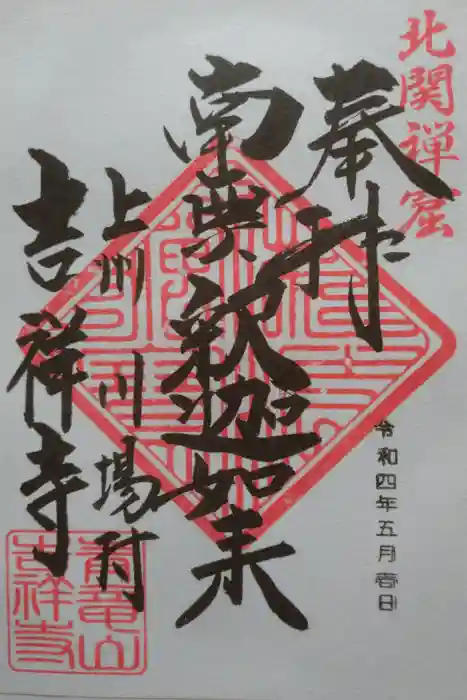 北関禅窟
奉拝
令和四年五月吉日
南無釈迦如来
上州 川場村
吉祥寺
青龍山
吉祥寺